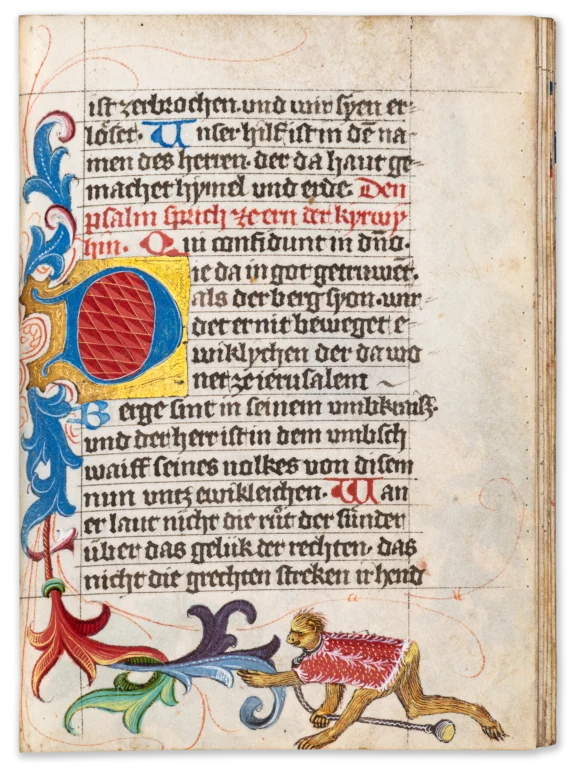 ist zerbrochen. und wir syen er-
löset. Unser hilf ist in dē na-
men des herren. der da haut ge-
machet hymel und erde. Den
psalm sprich ze ern der kyrwy
hin. Qui confidunt in dn̄o.
Die da in got getruwēt.
als der berg syon. wir-
det er nit beweget e-
wiklychen der da wo
net ze ierusalem ~
Berge sint in seinem umbkraiss.
und der herr ist in dem umbsch
waiff seines uolkes von disem
nun untz ewikleichen. Wan
er laut nicht die růt der sünder
über das gelük der rechten. das
nicht die grechten streken ir hend